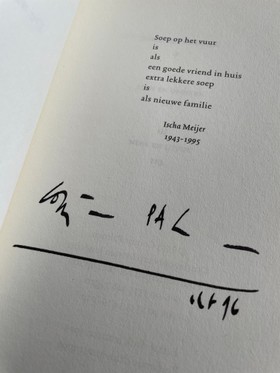 Soep op het vuur
is
als
een goede vriend in huis
extra lekkere soep
is
als nieuwe familie
Ischa Meijer
1943-1995
PAL